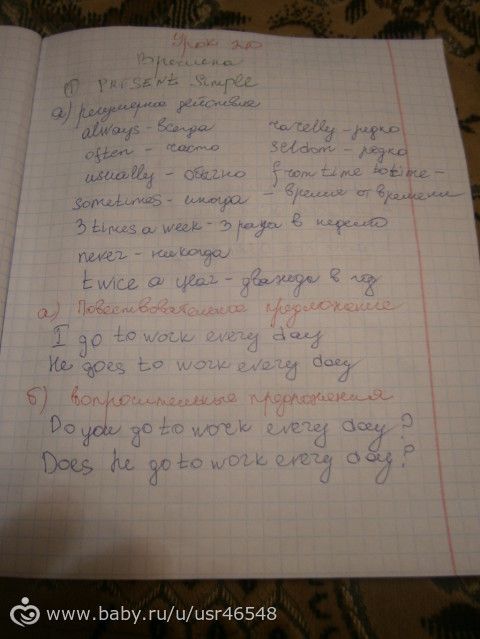 Урок 20
Времена
① PRESENT Simple
а) регулярное действие
always - всегда rarelly - редко
often - часто seldom - редко
usually - обычно from time to time -
sometimes - иногда - время от времени
3 times a week - 3 раза в неделю
never - никогда
twice a year - дважды в год
а) Повествовательное предложение
I go to work every day
He goes to work every day
б) вопросительные предложения
Do you go to work every day?
Does he go to work every day?
www.baby.ru/u/usr46548